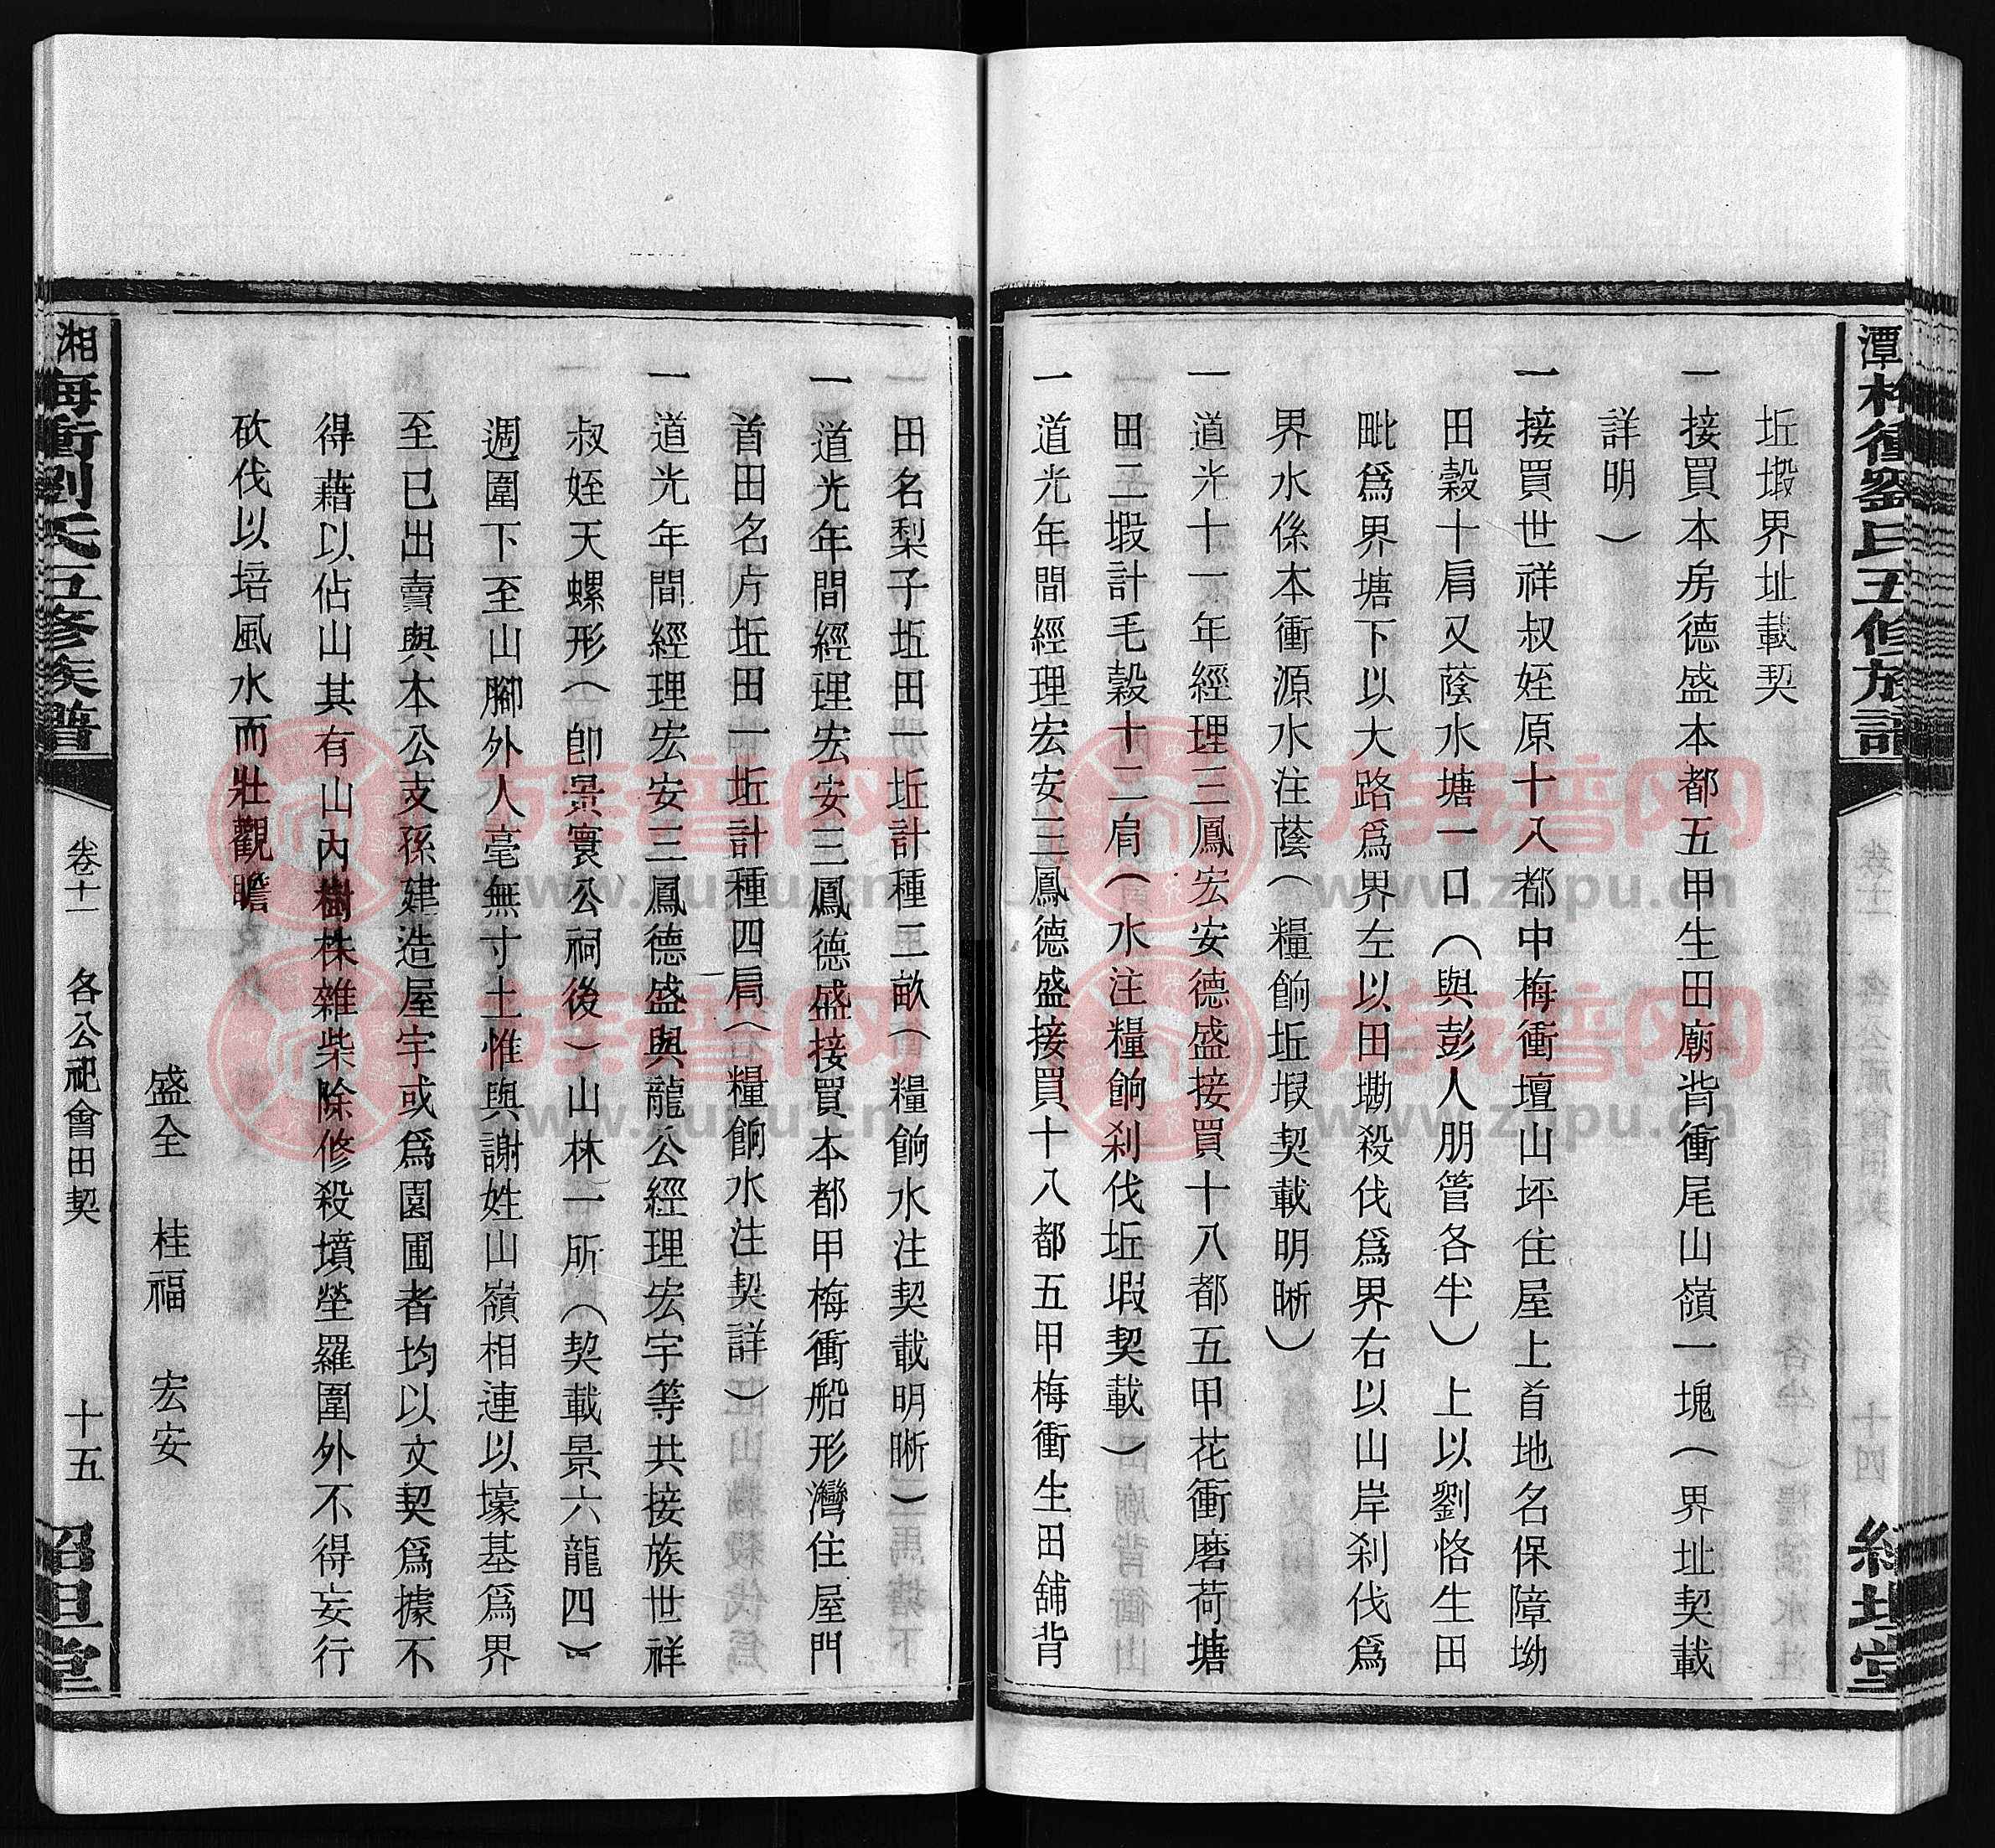 坵塅界址載契
一接買本房德盛本都五甲生田廟背衝尾山嶺一塊（界址契載
詳明）
一接買世祥叔姪原十八都中梅衝壇山坪住屋上首地名保障坳
田穀十肩又蔭水塘一口（與彭人朋管各半）上以劉恪生田
毗爲界塘下以大路爲界左以田墈殺伐爲界右以山岸剎伐爲
界水係本衝源水注蔭（糧餉坵塅契載明晰）
一道光十一年經理三鳳宏安德盛接買十八都五甲花衝磨荷塘
田二塅計毛穀十二肩（水注糧餉剎伐坵塅契載）
一道光年間經理宏安三鳳德盛接買十八都五甲梅衝生田舖背
田名梨子坵田一坵計種二畝（糧餉水注契載明晰）
一道光年間經理宏安三鳳德盛接買本都甲梅衝船形灣住屋門
首田名片坵田一坵計種四肩（糧餉水注契詳）
一道光年間經理宏安三鳳德盛與龍公經理宏宇等共接族世祥
叔姪天螺形（卽景寰公祠後）山林一所（契載景六龍四）
週圍下至山腳外人毫無寸土惟與謝姓山嶺相連以壕基爲界
至已出賣與本公支孫建造屋宇或爲園圃者均以文契爲據不
得藉以佔山其有山內樹株雜柴除修殺墳塋羅圍外不得妄行
砍伐以培風水而壯觀瞻
盛全　桂福　宏安
湘
梅衝劉氏五修族譜
卷十一　各公祀會田契　十五
紹坦堂
潭